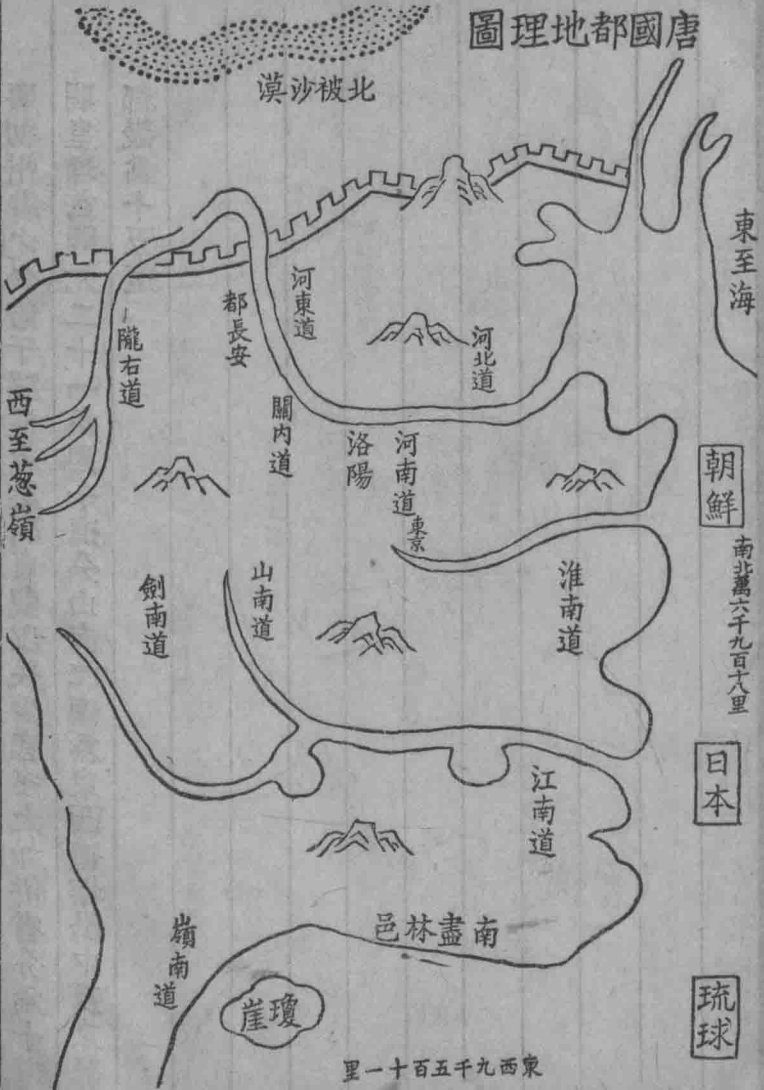 唐國都地理圖
北被沙漠
東至海
河東道
都長安
河北道
隴右道
關内道
西至葱嶺
洛陽
河南道
東京
朝鮮
南北萬六千九百十八里
淮南道
山南道
劍南道
日本
江南道
南盡林邑
嶺南道
瓊崖
琉球
東西九千五百十一里